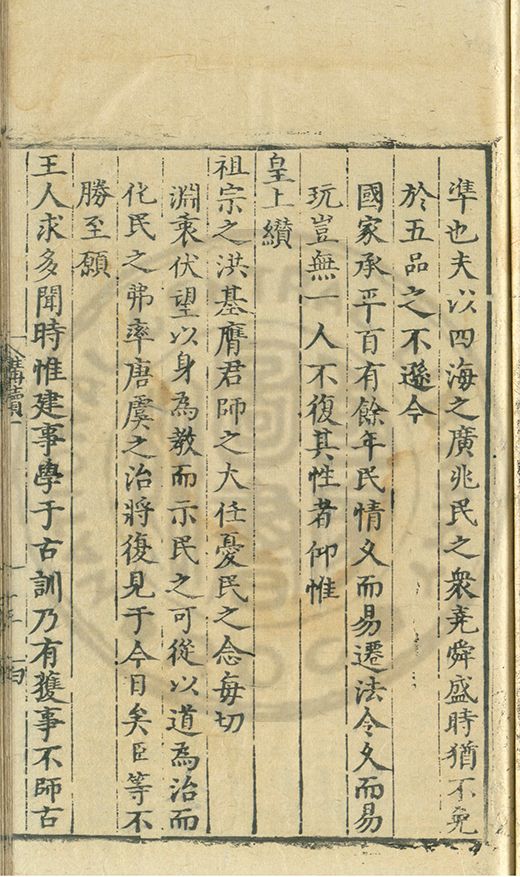 準也夫以四海之廣兆民之衆堯舜盛時猶不免
於五品之不遜今
國家承平百有餘年民情久而易遷法令久而易
玩豈無一人不復其性者仰惟
皇上纘
祖宗之洪基膺君師之大任憂民之念每切
淵衷伏望以身為教而示民之可從以道為治而
化民之弗率唐虞之治將復見于今日矣臣等不
勝至願
王人求多聞時惟建事學于古訓乃有獲事不師古